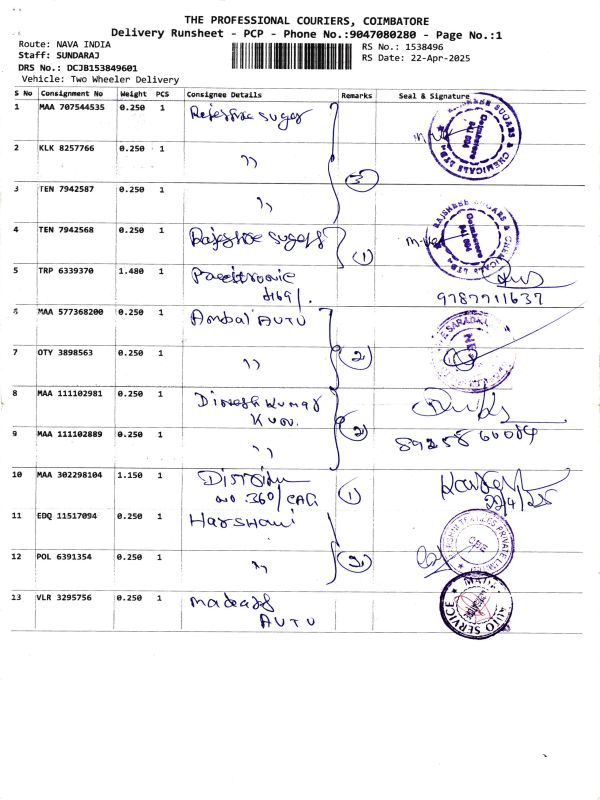 THE PROFESSIONAL COURIERS, COIMBATORE
Delivery Runsheet - PCP - Phone No.:9047080280 - Page No.:1
Route: NAVA INDIA
RS No.: 1538496
Staff: SUNDARAJ
RS Date: 22-Apr-2025
DRS No.: DCJB153849601
Vehicle: Two Wheeler Delivery
S No Consignment No Weight PCS Consignee Details Remarks Seal & Signature
1 MAA 707544535 0.250 1 Rajshree sugar
2 KLK 8257766 0.250 1 ,,
3 TEN 7942587 0.250 1 ,, 3
4 TEN 7942568 0.250 1 Rajshree sugars 1
RAJSHREE SUGARS & CHEMICALS LTD. Coimbatore 641 004
5 TRP 6339370 1.480 1
9787711637
6 MAA 577368200 0.250 1 Ambal AUTO
7 OTY 3898563 0.250 1 ,, 2
8 MAA 111102981 0.250 1 Dinesh Kumar
9 MAA 111102889 0.250 1 ,, 2
10 MAA 302298104 1.150 1 1
22/4/25
11 EDQ 11517094 0.250 1 Harshani
12 POL 6391354 0.250 1 ,, 2
13 VLR 3295756 0.250 1 madras
AUTO
AUTO SERVICE